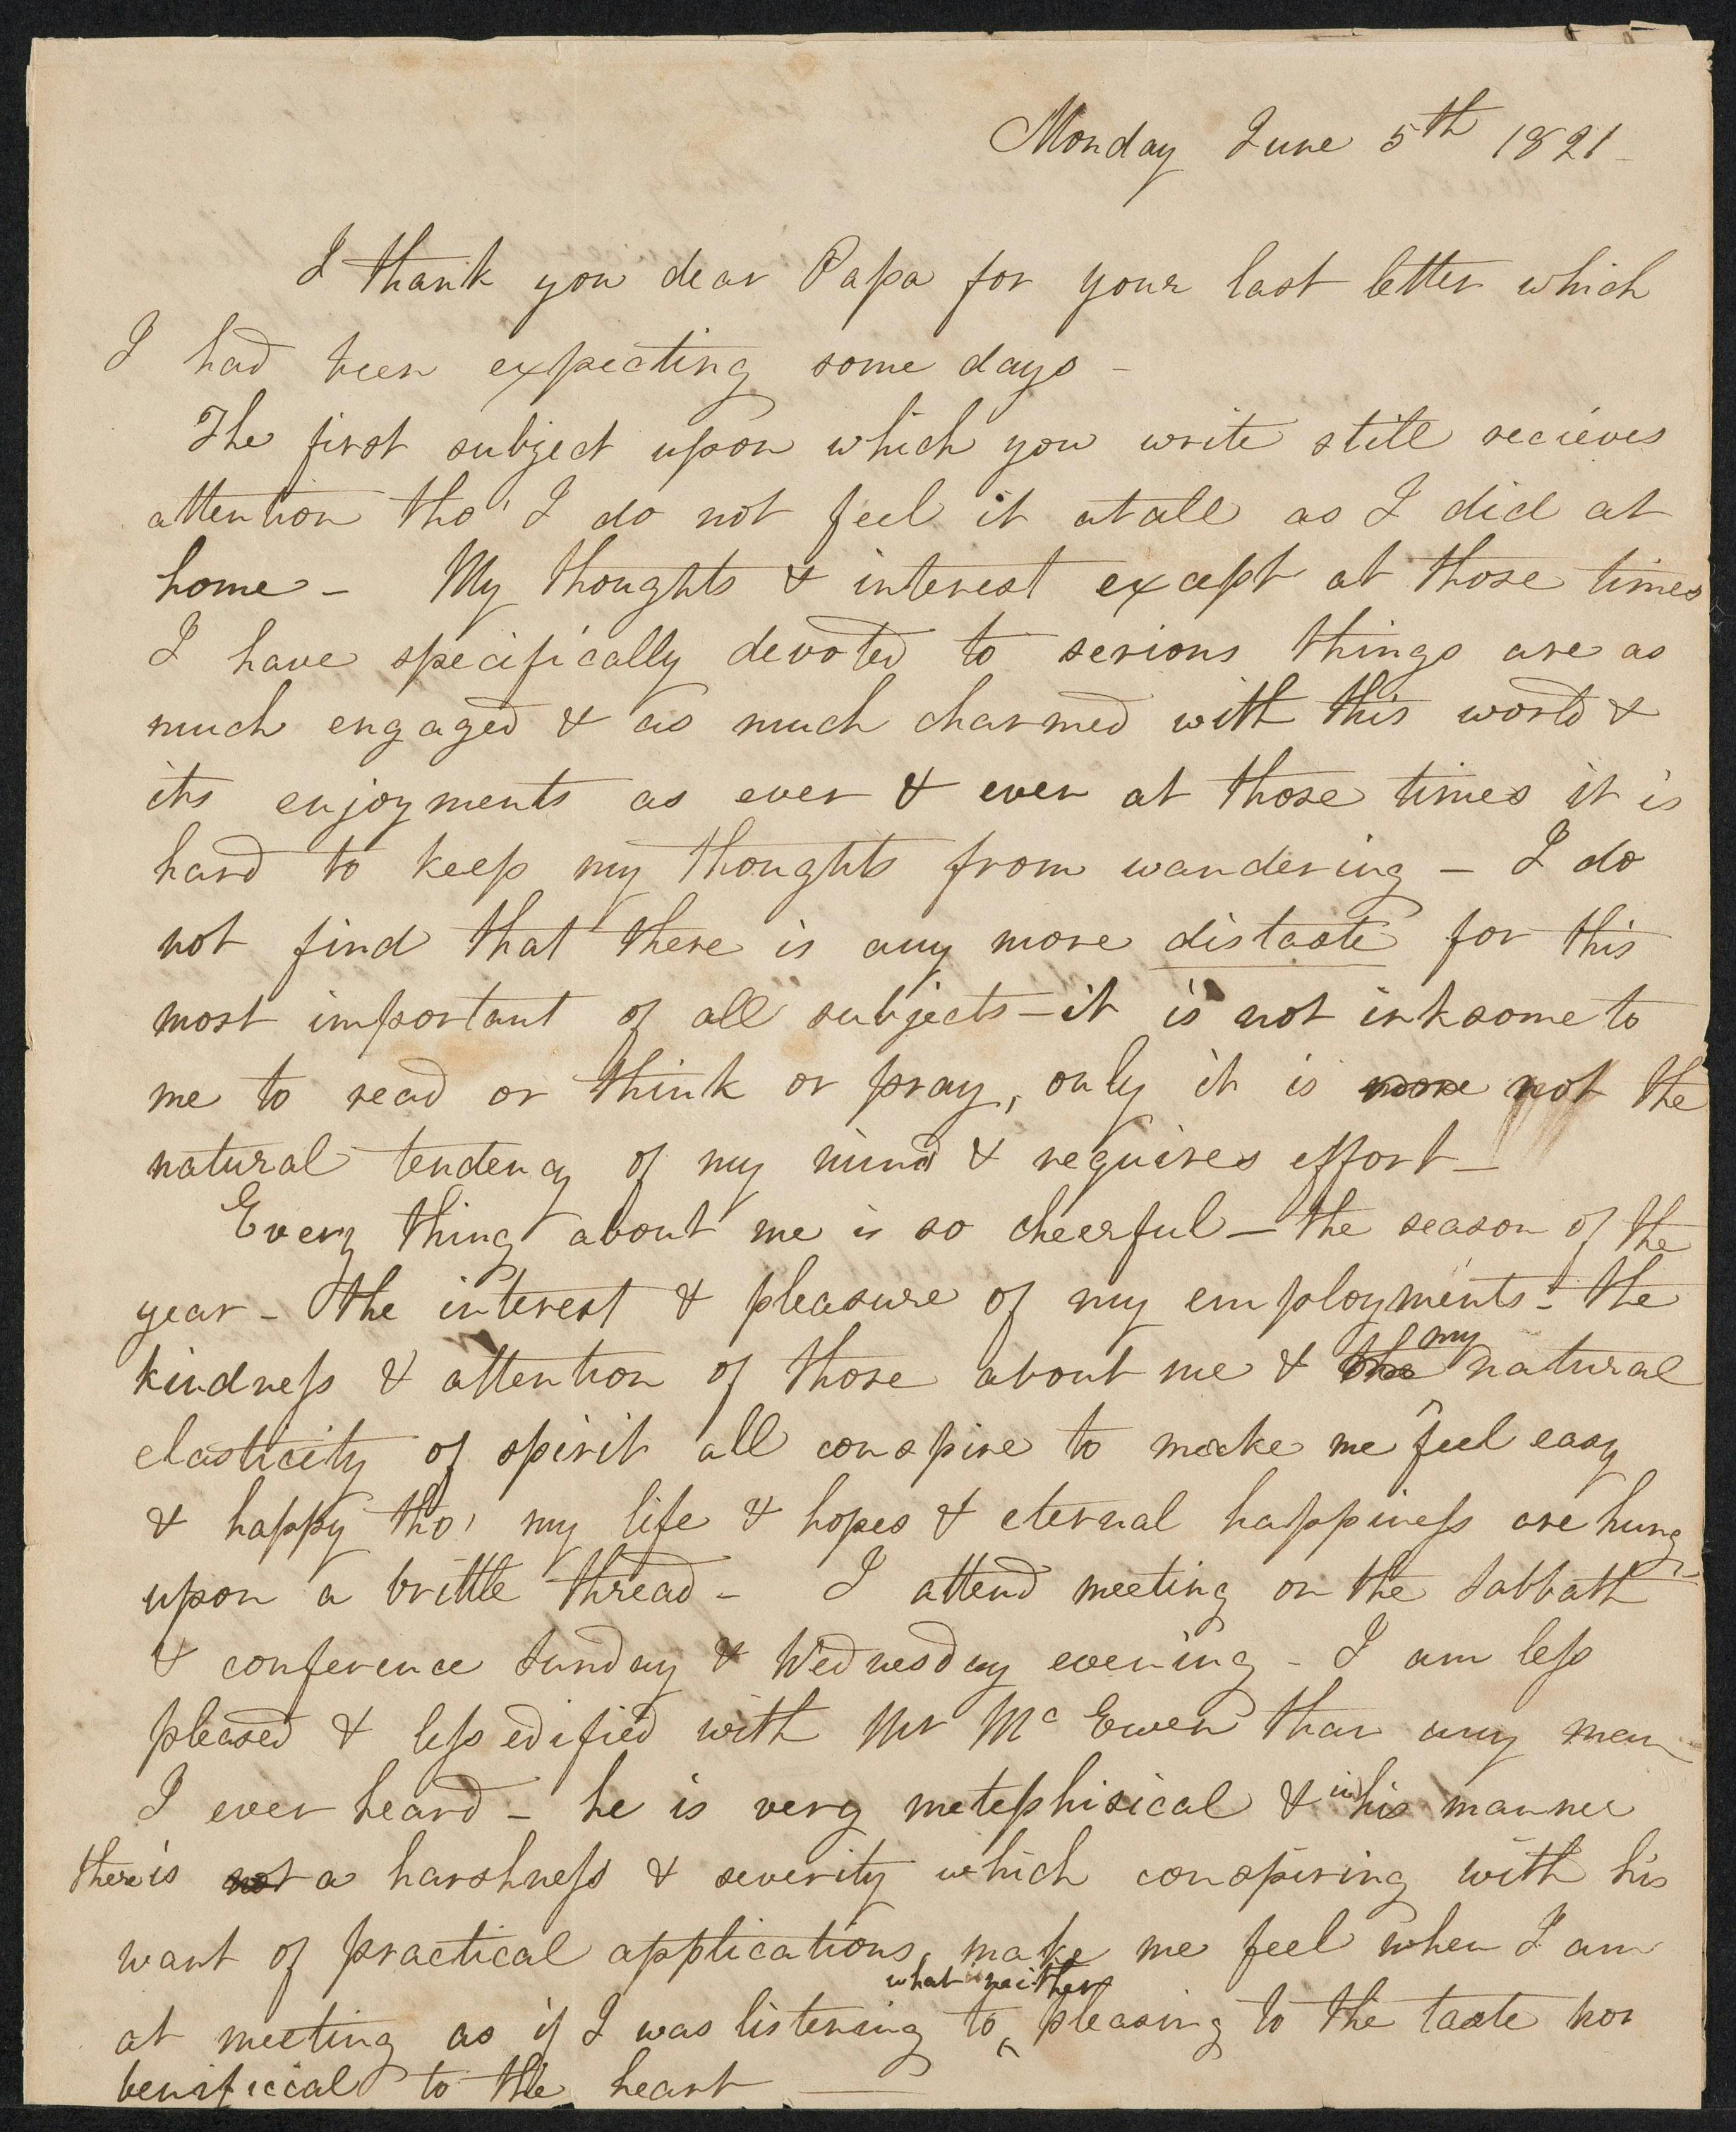 Monday June 5th 1821
I thank you dear Papa for your last letter which
I had been expecting some days -
The first subject upon which you write still recieves
attention tho' I do not feel it atall as I did at
home - My thoughts & interest except at those times
I have specifically devoted to serious things are as
much engaged & as much charmed with this world &
its enjoyments as ever & even at those times it is
hard to keep my thoughts from wandering - I do
not find that there is any more distaste for this
most important of all subjects - it is not irksome to
me to read or think or pray, only it is more not the
natural tendency of my mind & requires effort -
Every thing about me is so cheerful - the season of the
year - the interest & pleasure of my employments - the
kindness & attention of those about me & the my natural
elasticity of spirit all conspire to make me feel easy
& happy tho' my life & hopes & eternal happiness are hung
upon a brittle thread - I attend meeting on the Sabbath
& conference Sunday & Wednesday evening - I am less
pleased & less edified with Mr McEwen than any man
I ever heard - he is very metephisical & in his manner
there is not a harshness & severity which conspiring with his
want of practical applications, make me feel when I am
at meeting as if I was listening to what neither pleasing to the taste nor
benificial to the heart